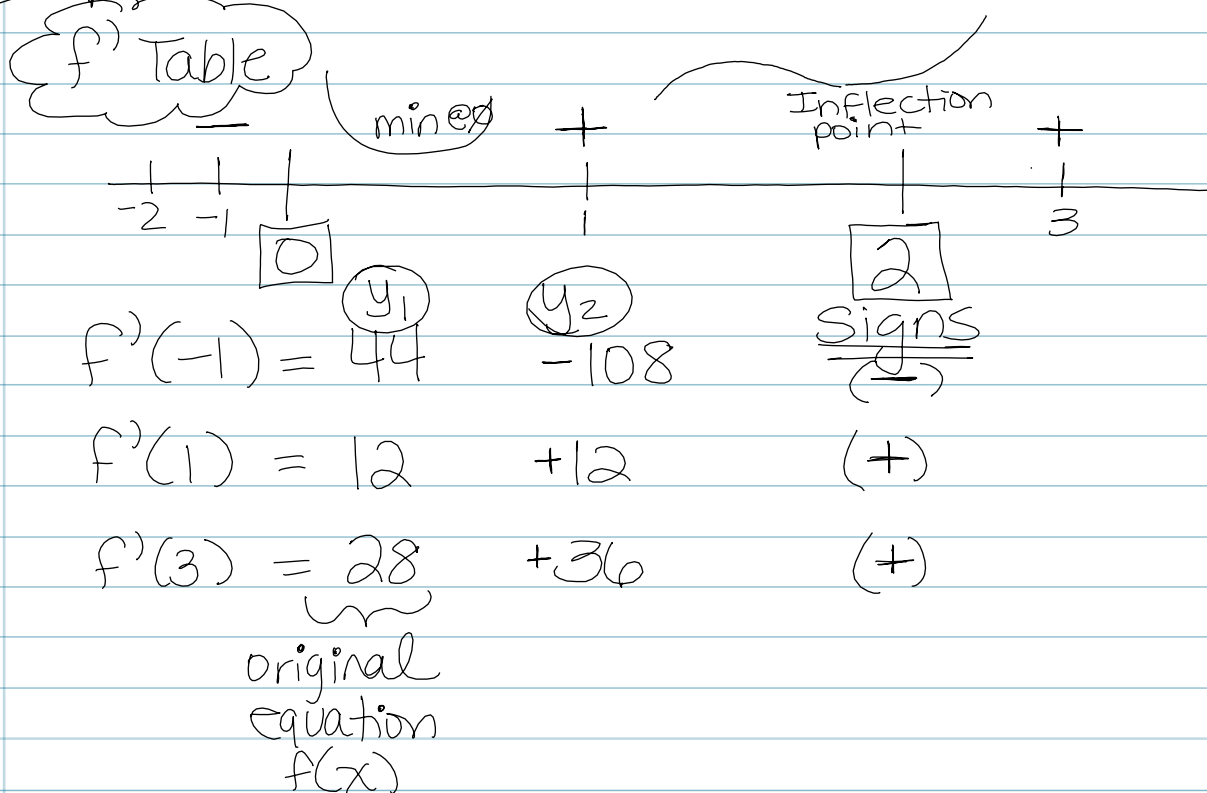 f' Table
min@0
Inflection
point
− + +
-2 -1 0 1 2 3
y₁ y₂ Signs
f'(-1) = 44 -108 (−)
f'(1) = 12 +12 (+)
f'(3) = 28 +36 (+)
original
equation
f(x)